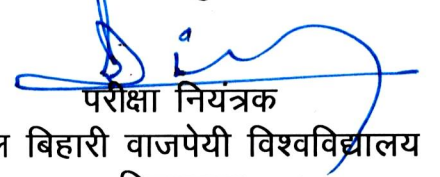 परीक्षा नियंत्रक
बिहारी वाजपेयी विश्वविद्यालय